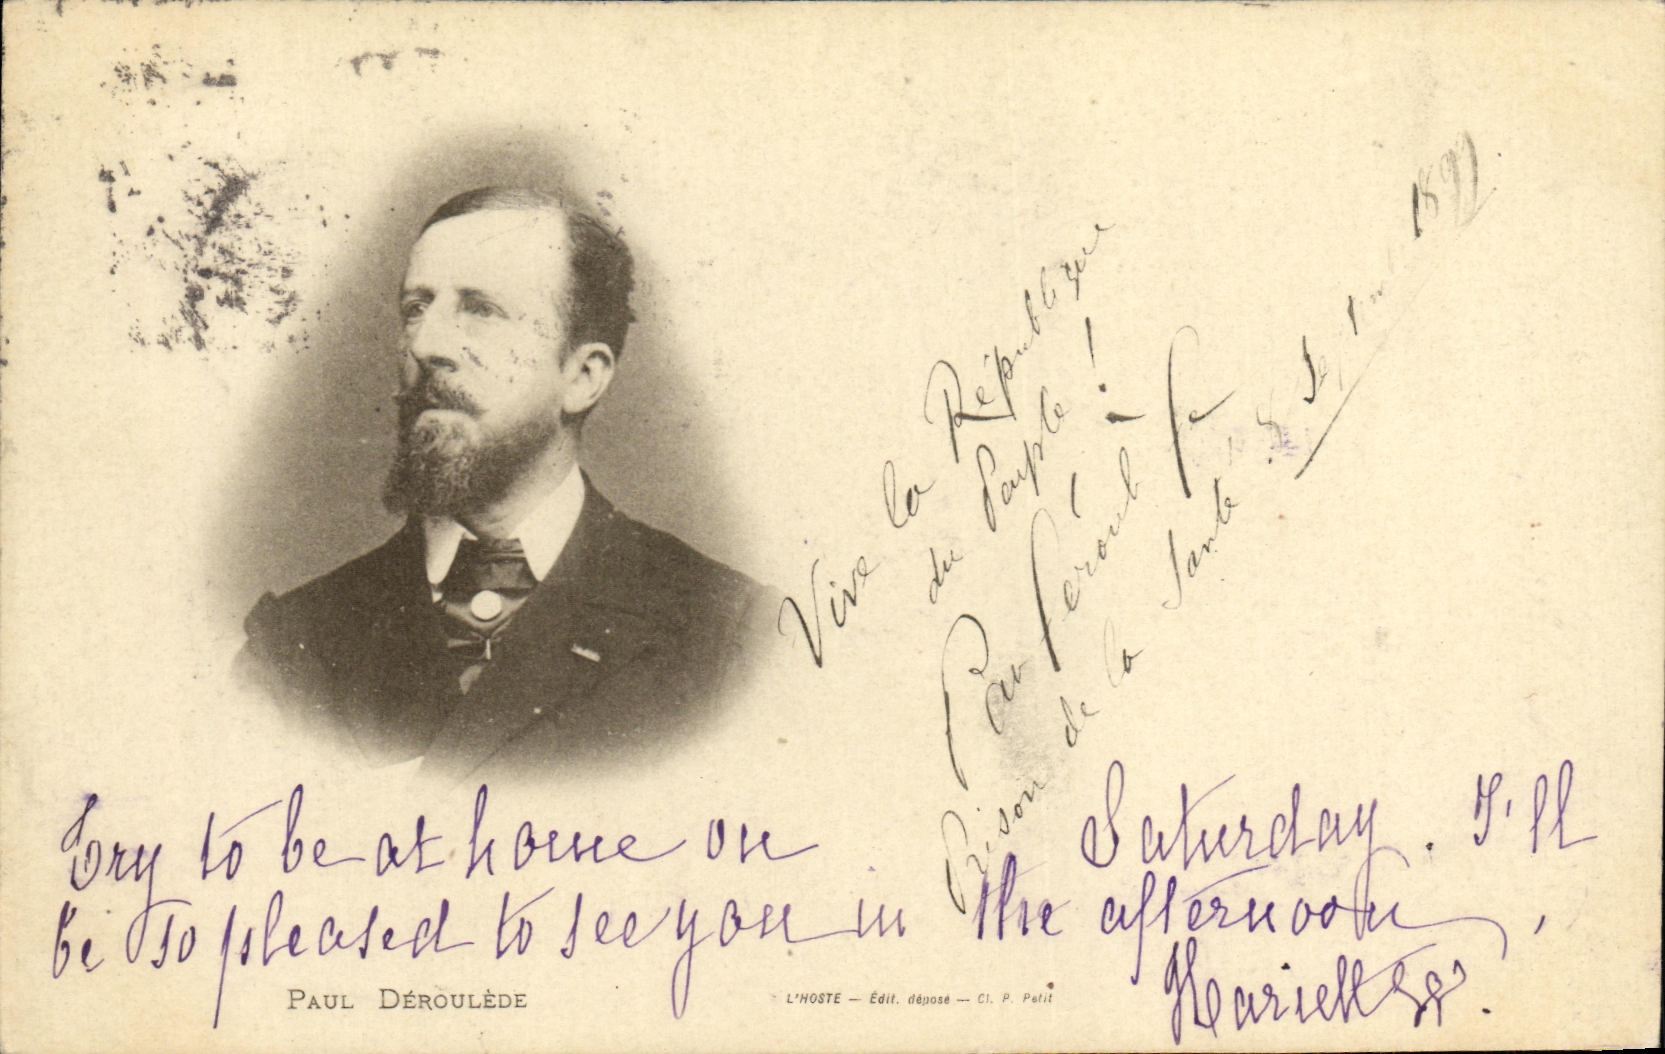 Vive la République
du Peuple !
Paul Déroulède
Prison de la Santé. 8 Sept 1899
Try to be at home on Saturday. I'll
be so pleased to see you in the afternoon,
Harielle.
PAUL DÉROULÈDE
L'HOSTE — Édit. déposé — Cl. P. Petit